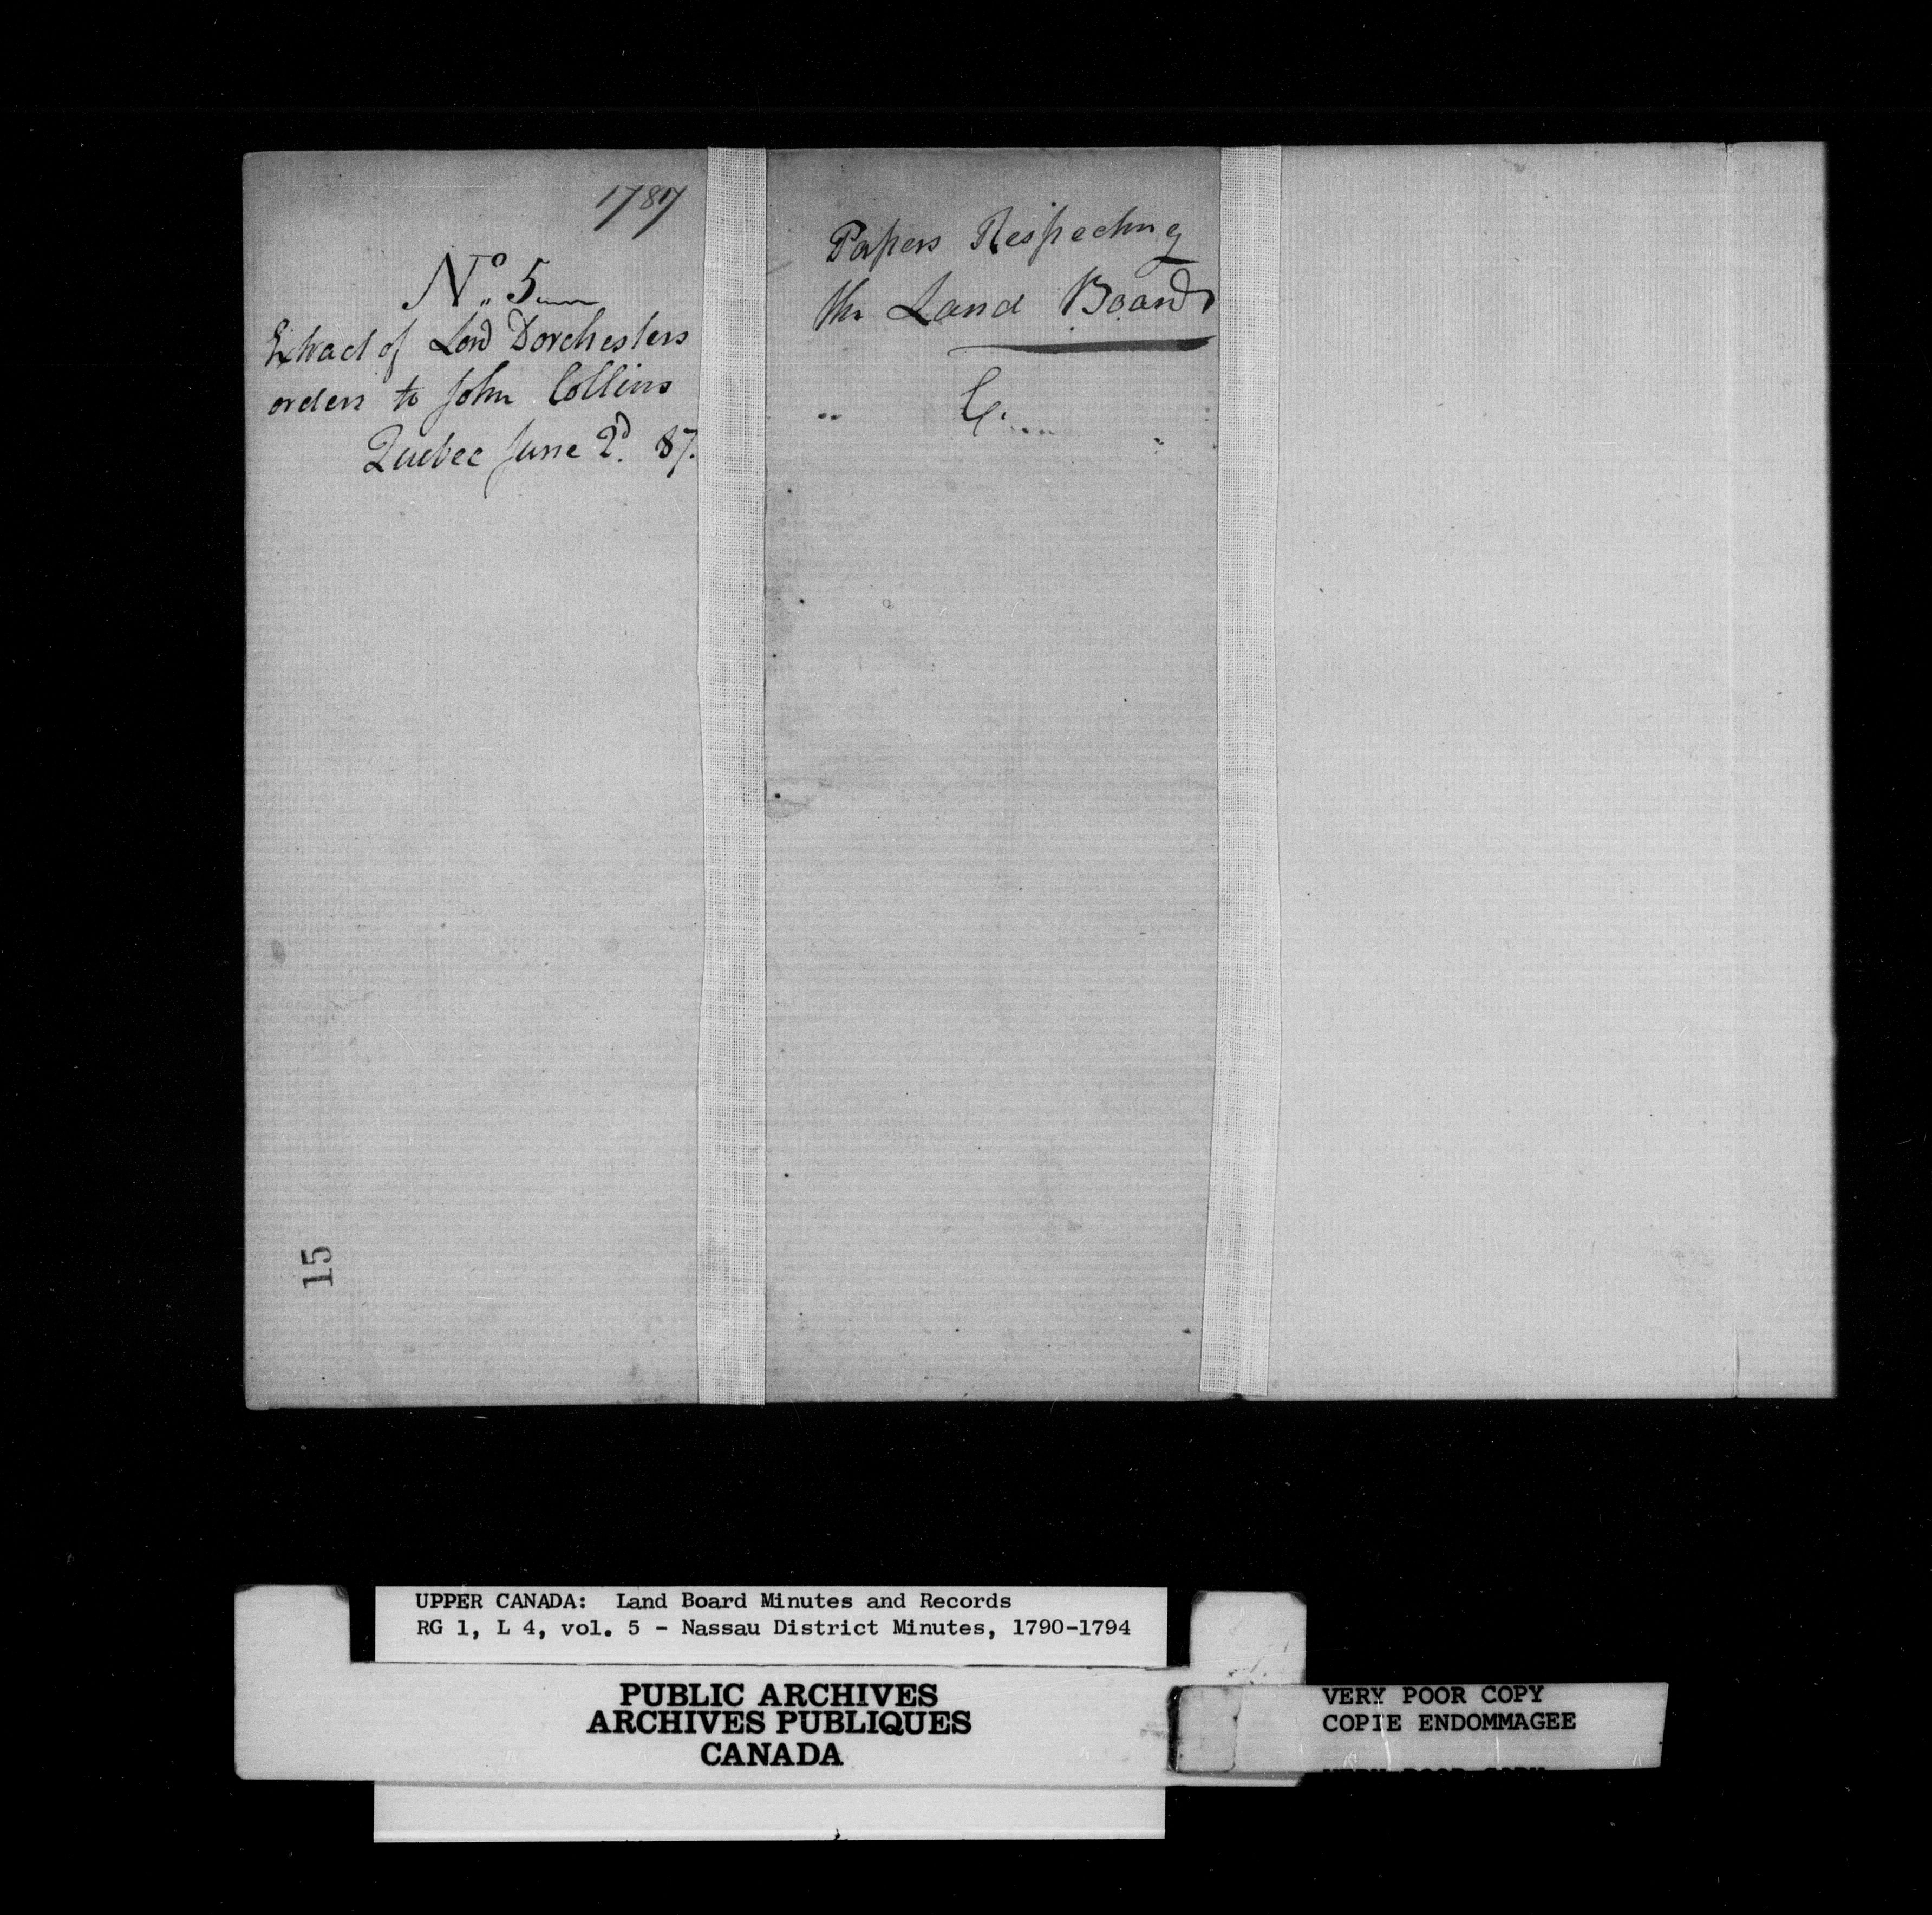 1787
No. 5
Extract of Lord Dorchesters
orders to John Collins
Quebec June 2d. 87.
Papers Respecting
the Land Board
C.
15
UPPER CANADA: Land Board Minutes and Records
RG 1, L 4, vol. 5 - Nassau District Minutes, 1790-1794
PUBLIC ARCHIVES
ARCHIVES PUBLIQUES
CANADA
VERY POOR COPY
COPIE ENDOMMAGEE